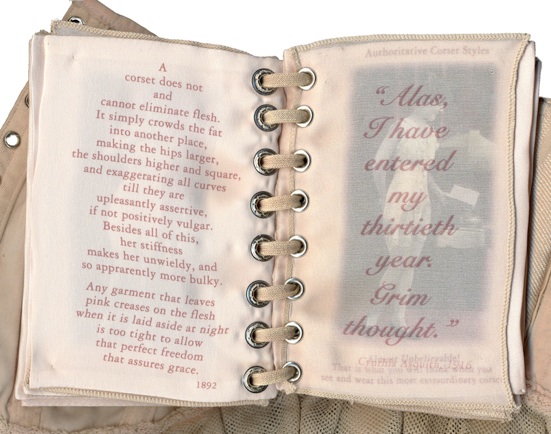 A
corset does not
and
cannot eliminate flesh.
It simply crowds the fat
into another place,
making the hips larger,
the shoulders higher and square,
and exaggerating all curves
till they are
upleasantly assertive,
if not positively vulgar.
Besides all of this,
her stiffness
makes her unwieldy, and
so apparently more bulky.
Any garment that leaves
pink creases on the flesh
when it is laid aside at night
is too tight to allow
that perfect freedom
that assures grace.
1892
Authoritative Corset Styles
“Alas,
I have
entered
my
thirtieth
year.
Grim
thought.”
Cynthia Asquith, 1916
That is what you will think when you
see and wear this most extraordinary corset